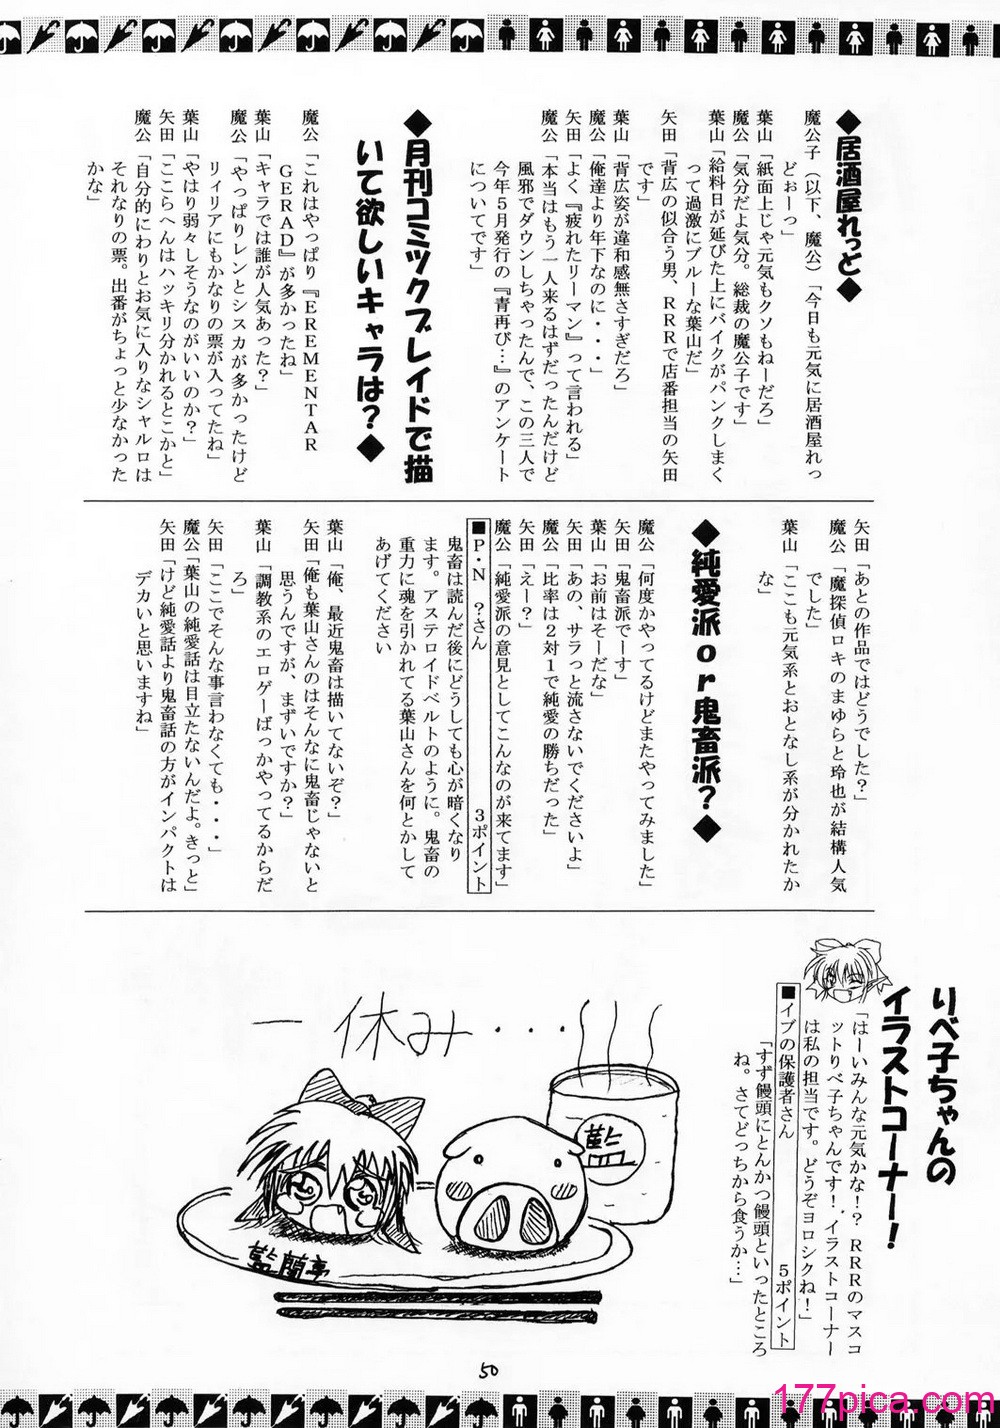 ◆居酒屋れっど◆
魔公子（以下、魔公）「今日も元気に居酒屋れっ
どぉーっ」
葉山「紙面上じゃ元気もクソもねーだろ」
魔公「気分だよ気分。総裁の魔公子です」
葉山「給料日が延びた上にバイクがパンクしまく
って過激にブルーな葉山だ」
矢田「背広の似合う男、ＲＲＲで店番担当の矢田
です」
葉山「背広姿が違和感無さすぎだろ」
魔公「俺達より年下なのに・・・」
矢田「よく『疲れたリーマン』って言われる」
魔公「本当はもう一人来るはずだったんだけど
風邪でダウンしちゃったんで、この三人で
今年５月発行の『青再び…』のアンケート
についてです」
◆月刊コミックブレイドで描
いて欲しいキャラは？◆
魔公「これはやっぱり『ＥＲＥＭＥＮＴＡＲ
ＧＥＲＡＤ』が多かったね」
葉山「キャラでは誰が人気あった？」
魔公「やっぱりレンとシスカが多かったけど
リィリアにもかなりの票が入ってたね」
葉山「やはり弱々しそうなのがいいのか？」
矢田「ここらへんはハッキリ分かれるとこかと」
魔公「自分的にわりとお気に入りなシャルロは
それなりの票。出番がちょっと少なかった
かな」
矢田「あとの作品ではどうでした？」
魔公「魔探偵ロキのまゆらと玲也が結構人気
でした」
葉山「ここも元気系とおとなし系が分かれたか
な」
◆純愛派ｏｒ鬼畜派？◆
魔公「何度かやってるけどまたやってみました」
矢田「鬼畜派でーす」
葉山「お前はそーだな」
矢田「あの、サラっと流さないでくださいよ」
魔公「比率は２対１で純愛の勝ちだった」
矢田「えー？」
魔公「純愛派の意見としてこんなのが来てます」
■Ｐ・Ｎ ？さん ３ポイント
鬼畜は読んだ後にどうしても心が暗くなり
ます。アステロイドベルトのように。鬼畜の
重力に魂を引かれてる葉山さんを何とかして
あげてください
葉山「俺、最近鬼畜は描いてないぞ？」
矢田「俺も葉山さんのはそんなに鬼畜じゃないと
思うんですが、まずいですか？」
葉山「調教系のエロゲーばっかやってるからだ
ろ」
矢田「ここでそんな事言わなくても・・・」
魔公「葉山の純愛話は目立たないんだよ。きっと」
矢田「けど純愛話より鬼畜話の方がインパクトは
デカいと思いますね」
りべ子ちゃんの
イラストコーナー！
「はーいみんな元気かな！？ ＲＲＲのマスコ
ットりべ子ちゃんです！イラストコーナー
は私の担当です。どうぞヨロシクね！」
■イブの保護者さん ５ポイント
「すず饅頭にとんかつ饅頭といったところ
ね。さてどっちから食うか…」
一休み・・・
藍
藍蘭亭
50
177pica.com